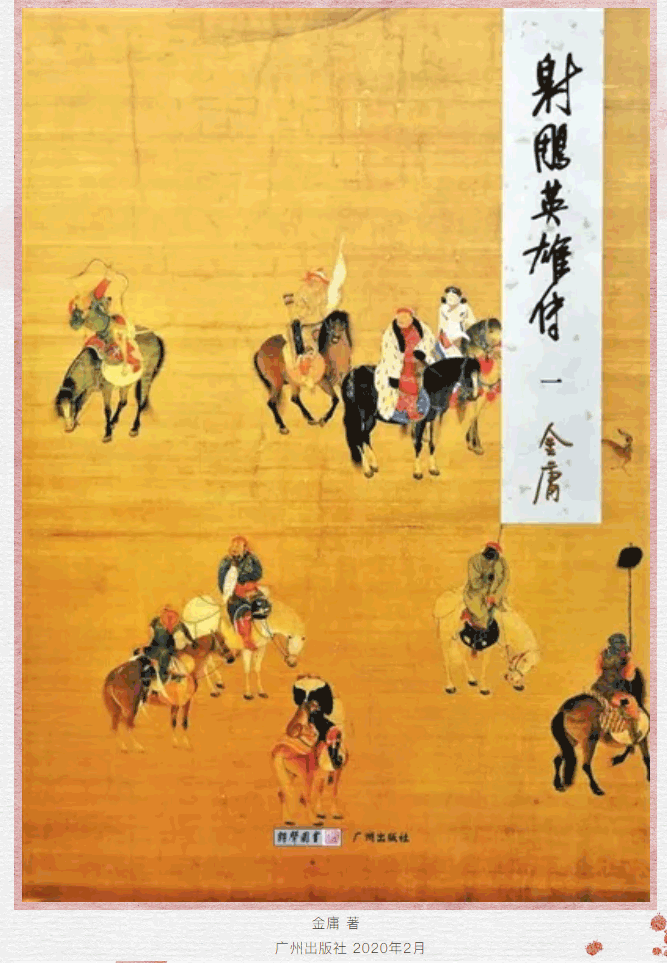 射雕英雄传
一
金庸
朗声图书
广州出版社
金庸 著
广州出版社 2020年2月